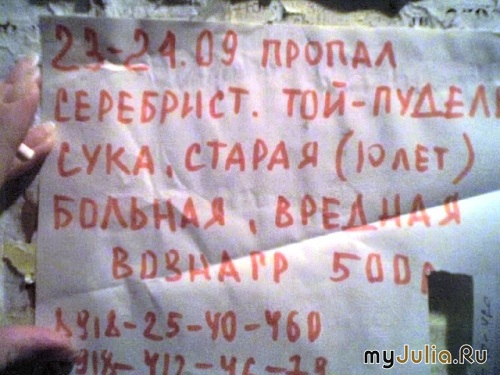 23-24.09 ПРОПАЛ
СЕРЕБРИСТ. ТОЙ-ПУДЕЛЬ
СУКА, СТАРАЯ (10 ЛЕТ)
БОЛЬНАЯ, ВРЕДНАЯ
ВОЗНАГР 500р
8918-25-40-460
myJulia.Ru